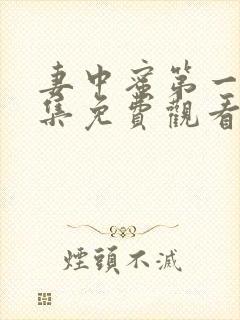 妻中蜜第一
集免費觀看
煙頭不滅